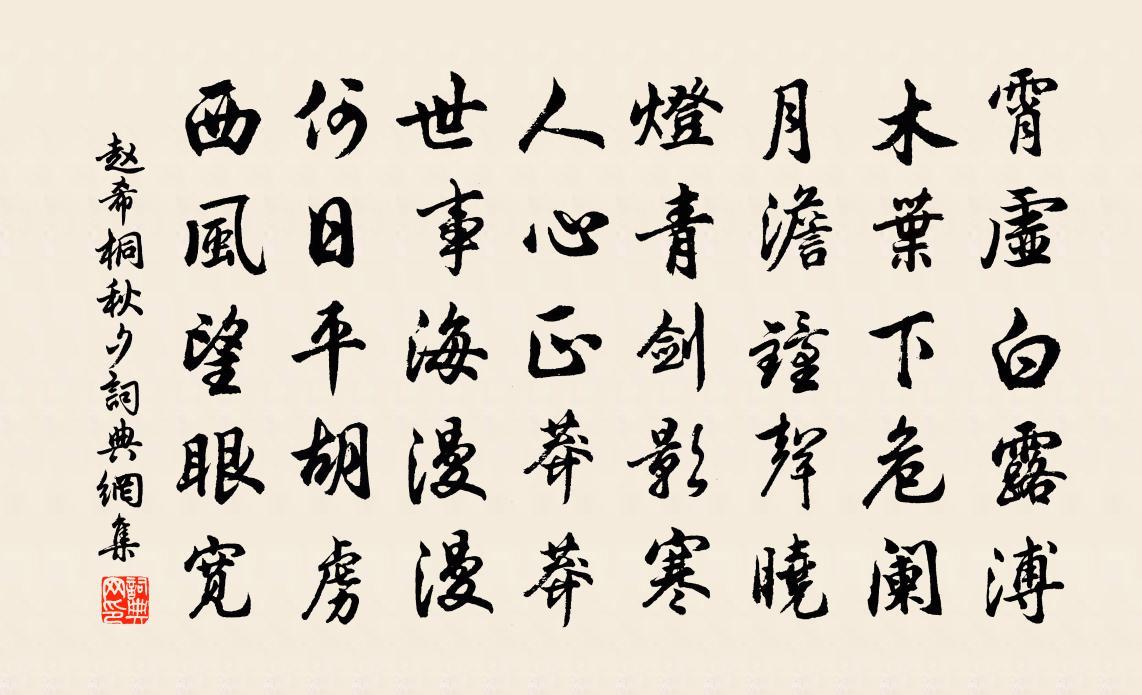 霄虚白露溥
木葉下危阑
月澹鐘聲曉
燈青剑影寒
人心正莽莽
世事海漫漫
何日平胡虏
西風望眼宽
赵希桐秋夕詞典網集
詞典网印